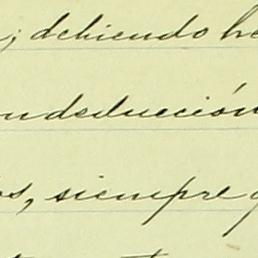 ; debiendo
deducción
os, siempre